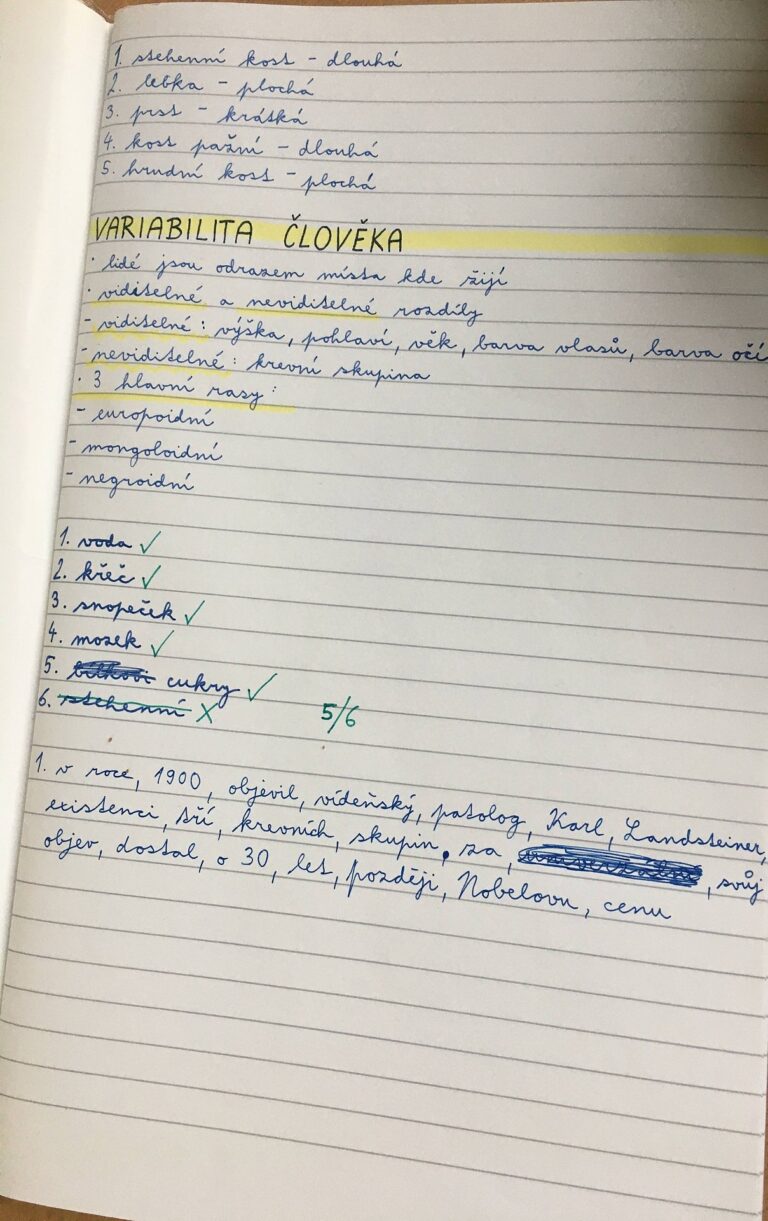 1. stehenní kost - dlouhá
2. lebka - plochá
3. prst - krátká
4. kost pažní - dlouhá
5. hrudní kost - plochá
VARIABILITA ČLOVĚKA
· lidé jsou odrazem místa kde žijí
· viditelné a neviditelné rozdíly
- viditelné: výška, pohlaví, věk, barva vlasů, barva očí
- neviditelné: krevní skupina
· 3 hlavní rasy:
- europoidní
- mongoloidní
- negroidní
1. voda ✓
2. křeč ✓
3. snopeček ✓
4. mozek ✓
5. cukry ✓
6. stehenní X 5/6
1. v roce, 1900, objevil, vídeňský, patolog, Karl, Landsteiner,
existenci, tří, krevních, skupin. za, , svůj
objev, dostal, o 30, let, později, Nobelovu, cenu